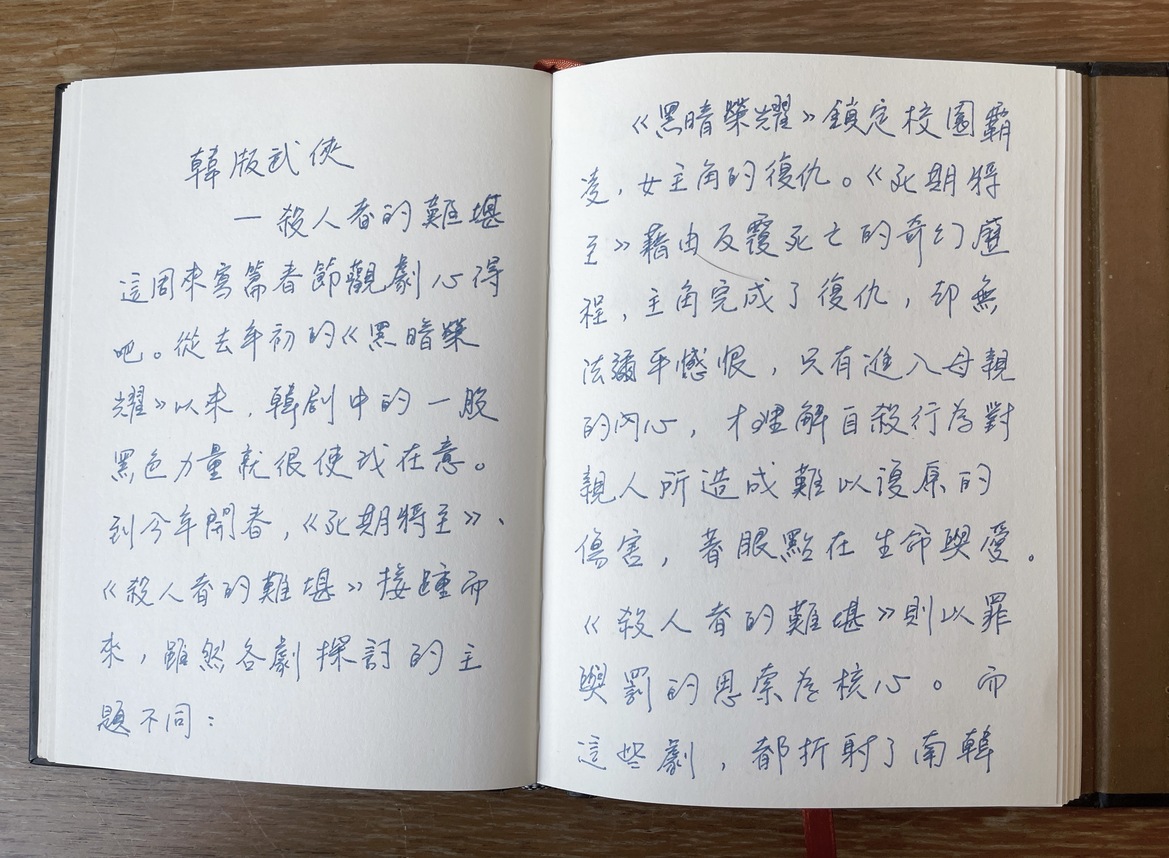 韓版武俠
—殺人者的難堪
這周來寫篇春節觀劇心得
吧。從去年初的《黑暗榮
耀》以來，韓劇中的一股
黑色力量就很使我在意。
到今年開春，《死期將至》、
《殺人者的難堪》接踵而
來，雖然各劇探討的主
題不同：
《黑暗榮耀》鎖定校園霸
凌，女主角的復仇。《死期將
至》藉由反覆死亡的奇幻歷
程，主角完成了復仇，卻無
法彌平憾恨，只有進入母親
的內心，才理解自殺行為對
親人所造成難以復原的
傷害，著眼點在生命與愛。
《殺人者的難堪》則以罪
與罰的思索為核心。而
這些劇，都折射了南韓